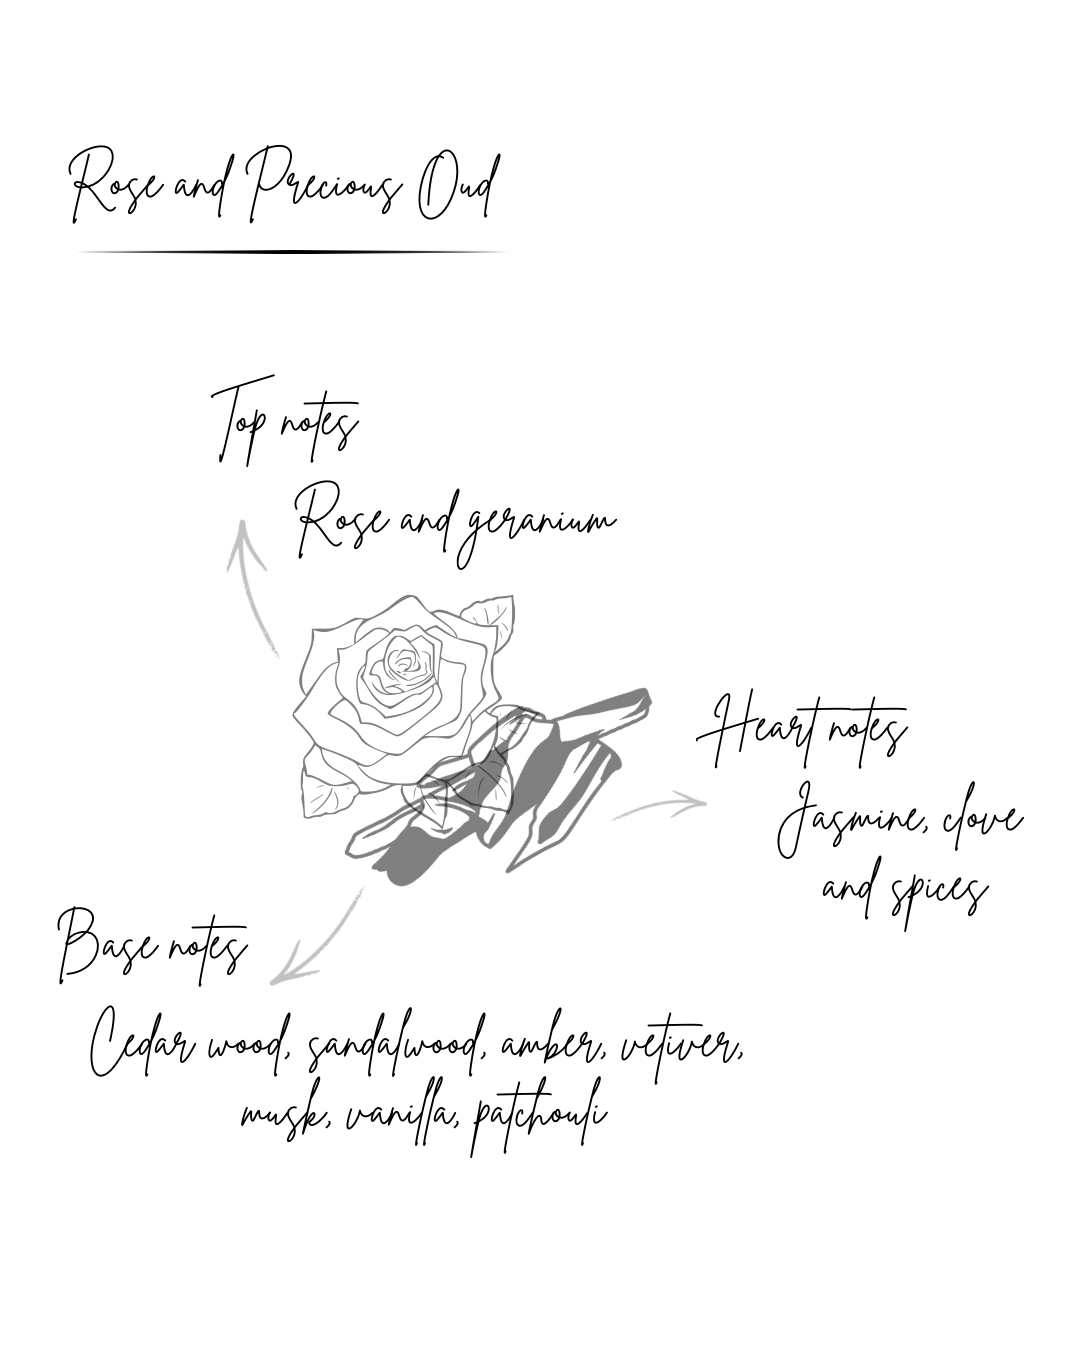 Rose and Precious Oud
Top notes
Rose and geranium
Heart notes
Jasmine, clove
and spices
Base notes
Cedar wood, sandalwood, amber, vetiver,
musk, vanilla, patchouli